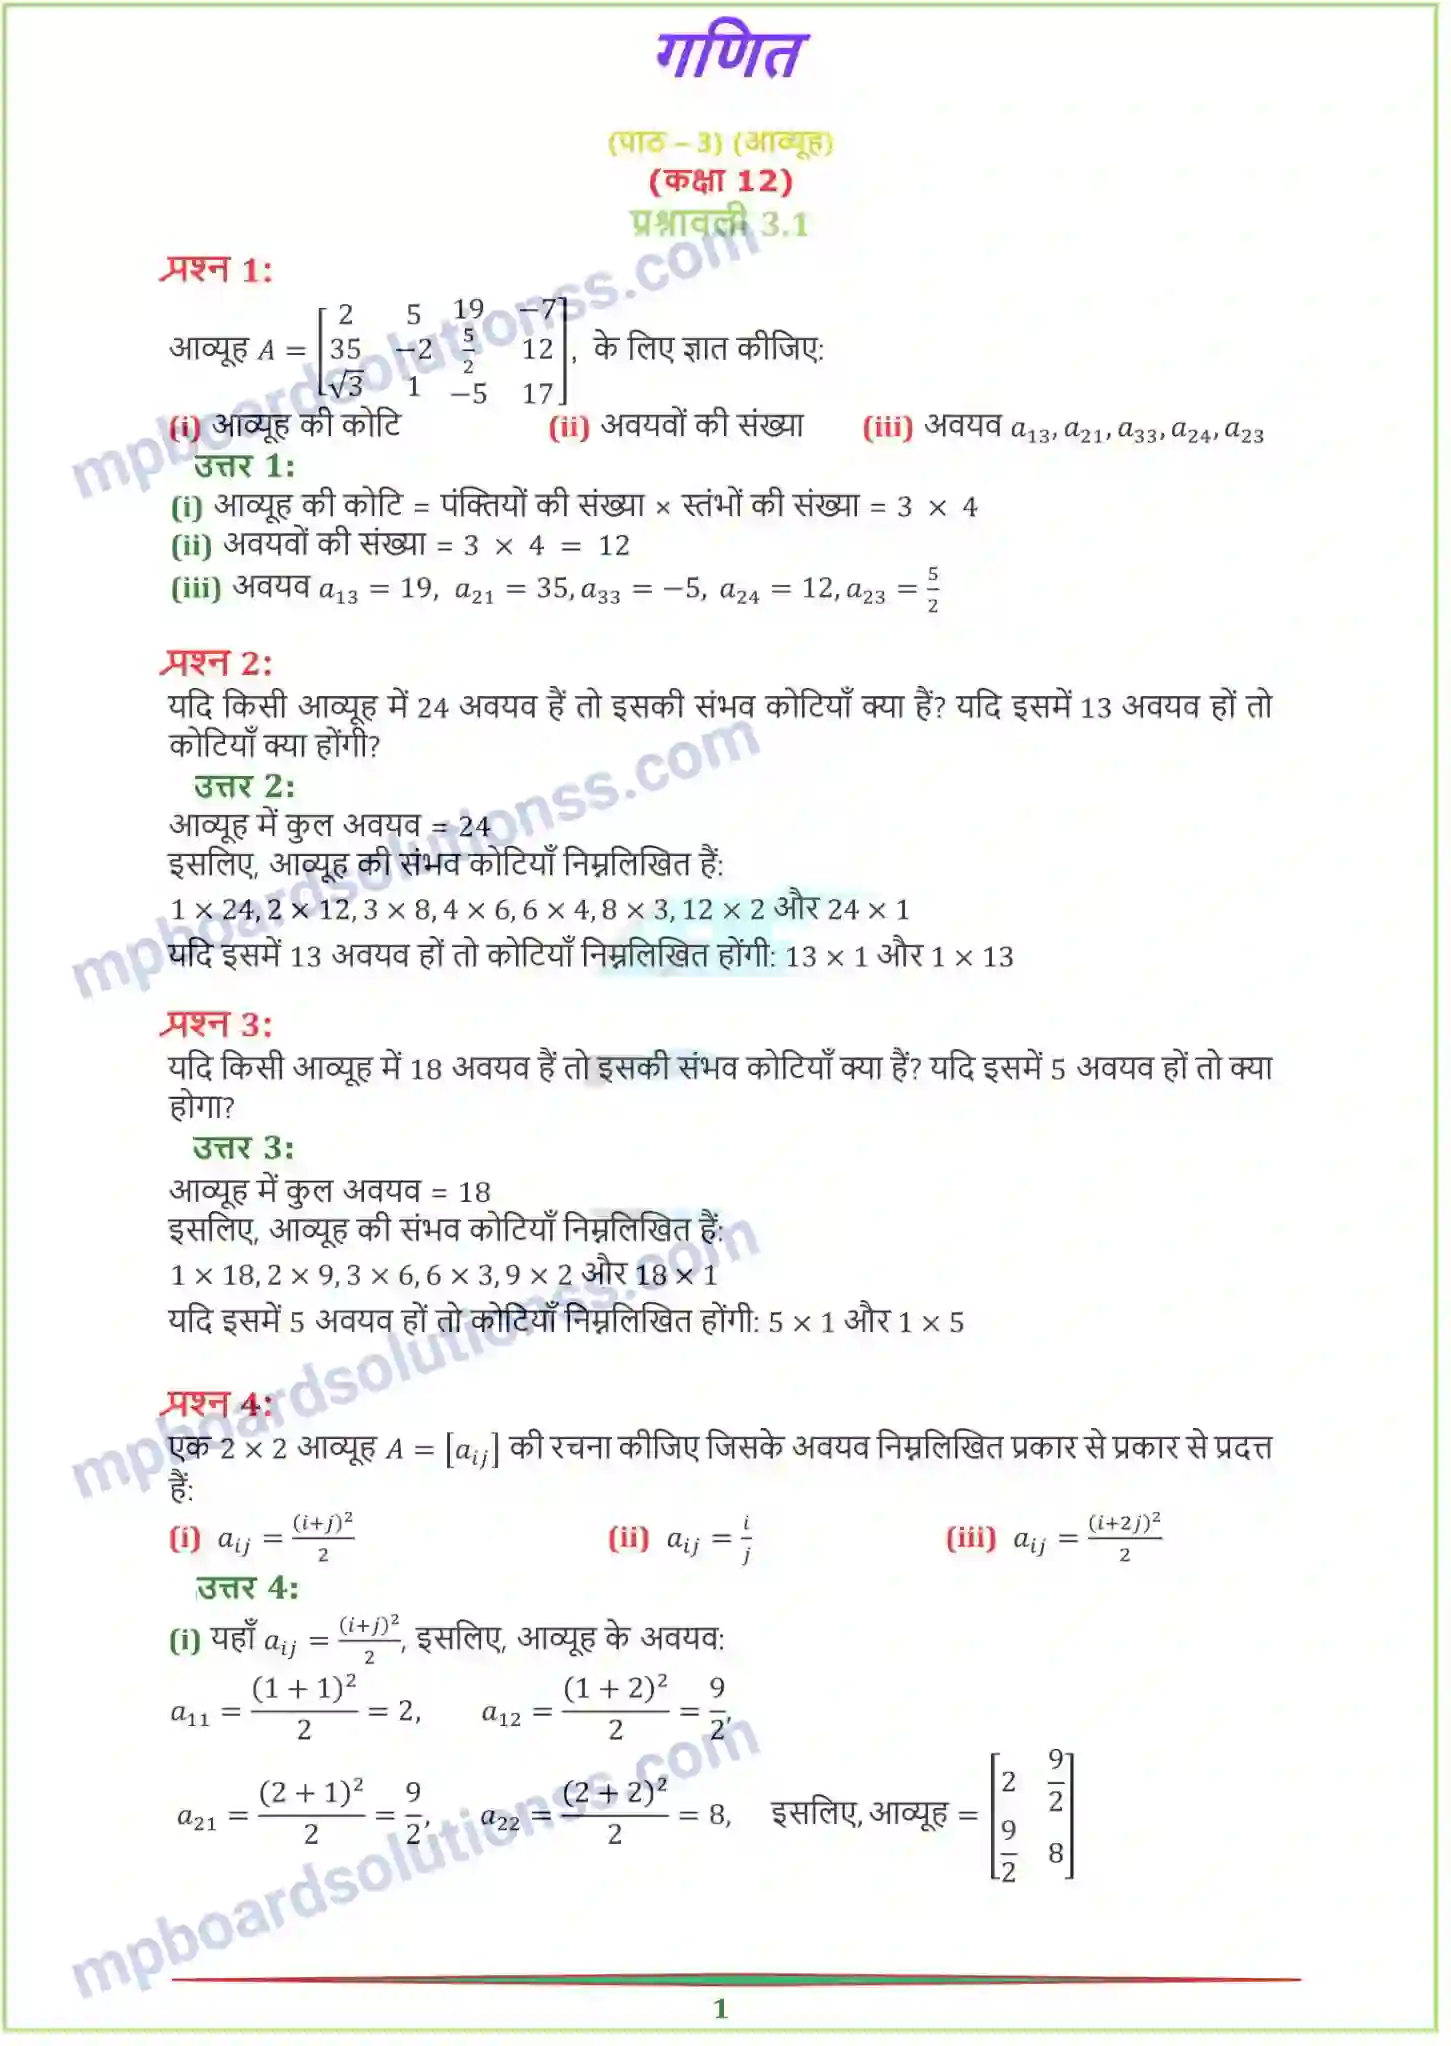 गणित
(पाठ – 3) (आव्यूह)
(कक्षा 12)
प्रश्नावली 3.1
प्रश्न 1:
आव्यूह A = [2 5 19 −7; 35 −2 5/2 12; √3 1 −5 17], के लिए ज्ञात कीजिए:
(i) आव्यूह की कोटि (ii) अवयवों की संख्या (iii) अवयव a₁₃, a₂₁, a₃₃, a₂₄, a₂₃
उत्तर 1:
(i) आव्यूह की कोटि = पंक्तियों की संख्या × स्तंभों की संख्या = 3 × 4
(ii) अवयवों की संख्या = 3 × 4 = 12
(iii) अवयव a₁₃ = 19, a₂₁ = 35, a₃₃ = −5, a₂₄ = 12, a₂₃ = 5/2
प्रश्न 2:
यदि किसी आव्यूह में 24 अवयव हैं तो इसकी संभव कोटियाँ क्या हैं? यदि इसमें 13 अवयव हों तो
कोटियाँ क्या होंगी?
उत्तर 2:
आव्यूह में कुल अवयव = 24
इसलिए, आव्यूह की संभव कोटियाँ निम्नलिखित हैं:
1 × 24, 2 × 12, 3 × 8, 4 × 6, 6 × 4, 8 × 3, 12 × 2 और 24 × 1
यदि इसमें 13 अवयव हों तो कोटियाँ निम्नलिखित होंगी: 13 × 1 और 1 × 13
प्रश्न 3:
यदि किसी आव्यूह में 18 अवयव हैं तो इसकी संभव कोटियाँ क्या हैं? यदि इसमें 5 अवयव हों तो क्या
होगा?
उत्तर 3:
आव्यूह में कुल अवयव = 18
इसलिए, आव्यूह की संभव कोटियाँ निम्नलिखित हैं:
1 × 18, 2 × 9, 3 × 6, 6 × 3, 9 × 2 और 18 × 1
यदि इसमें 5 अवयव हों तो कोटियाँ निम्नलिखित होंगी: 5 × 1 और 1 × 5
प्रश्न 4:
एक 2 × 2 आव्यूह A = [aᵢⱼ] की रचना कीजिए जिसके अवयव निम्नलिखित प्रकार से प्रकार से प्रदत्त
हैं:
(i) aᵢⱼ = (i+j)²/2 (ii) aᵢⱼ = i/j (iii) aᵢⱼ = (i+2j)²/2
उत्तर 4:
(i) यहाँ aᵢⱼ = (i+j)²/2, इसलिए, आव्यूह के अवयव:
a₁₁ = (1 + 1)²/2 = 2, a₁₂ = (1 + 2)²/2 = 9/2,
a₂₁ = (2 + 1)²/2 = 9/2, a₂₂ = (2 + 2)²/2 = 8, इसलिए, आव्यूह = [2 9/2; 9/2 8]
1
mpboardsolutionss.com
mpboardsolutionss.com
mpboardsolutionss.com
mpboardsolutionss.com